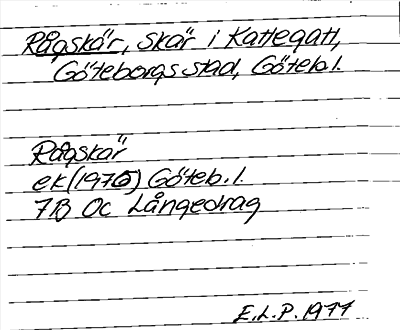 Rågskär, skär i Kattegatt,
Göteborgs stad, Göteb.l.
Rågskär
ek (1976) Göteb.l.
7B 0c Långedrag
E.L.P. 1977